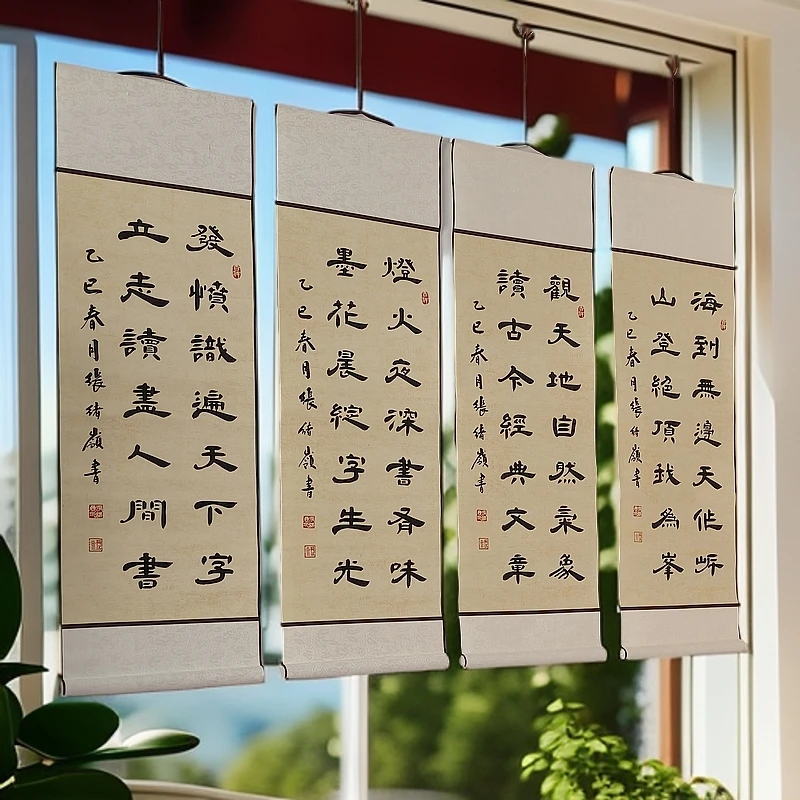 發憤識遍天下字
立志讀盡人間書
乙巳春月張緒嶺書
燈火夜深書有味
墨花晨綻字生光
乙巳春月張緒嶺書
觀天地自然氣象
讀古今經典文章
乙巳春月張緒嶺書
海到無邊天作岸
山登絕頂我為峯
乙巳春月張緒嶺書